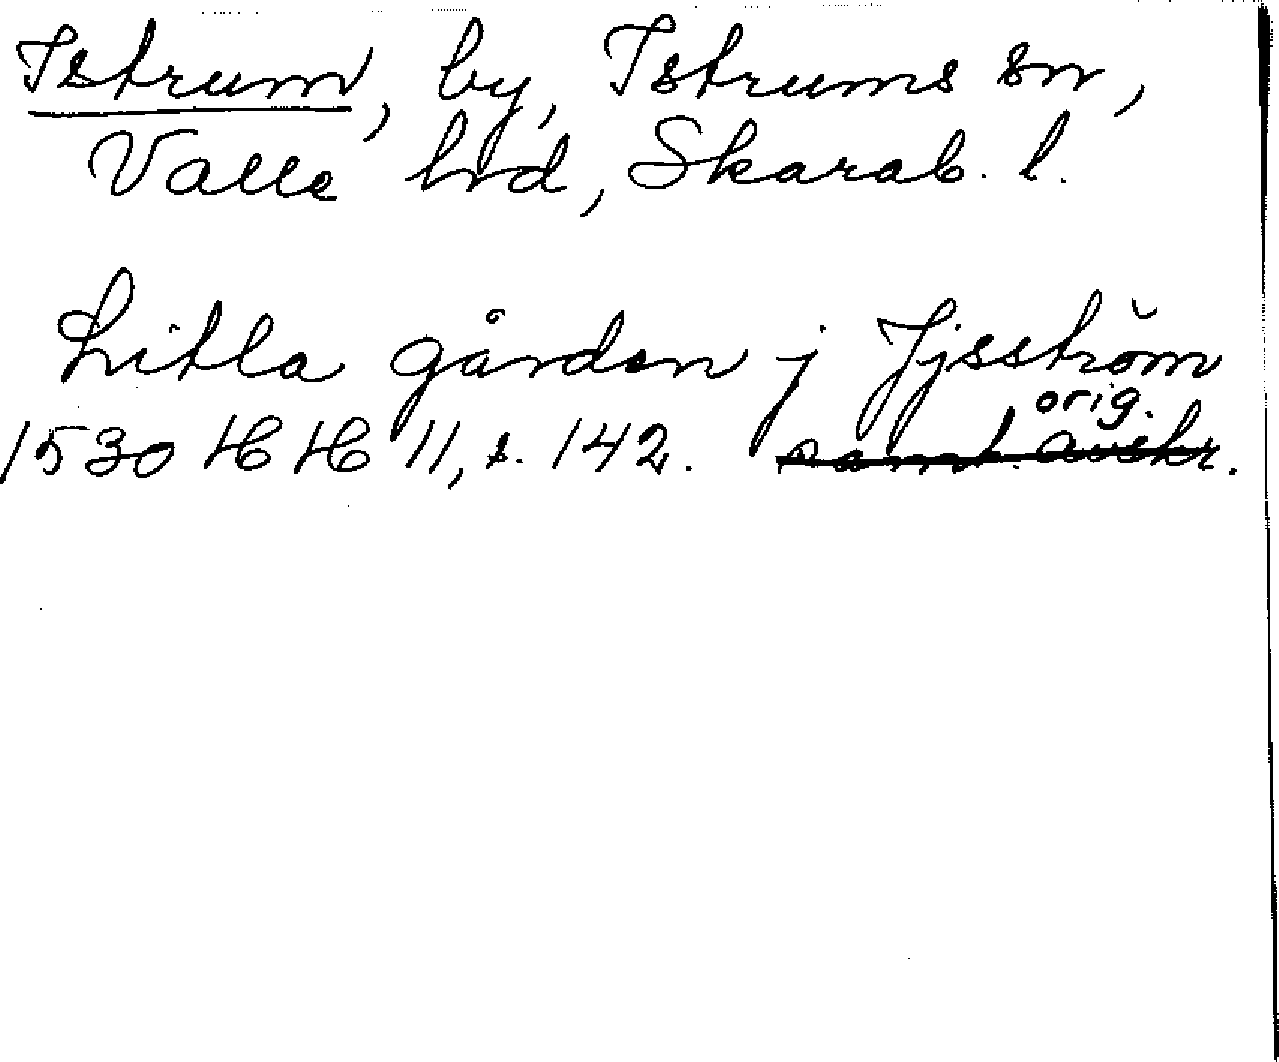 Istrum, by, Istrums sn,
Valle hrd, Skarab. l.
Litla gården j Jjsström
orig.
1530 HH 11, s. 142. samt. avskr.